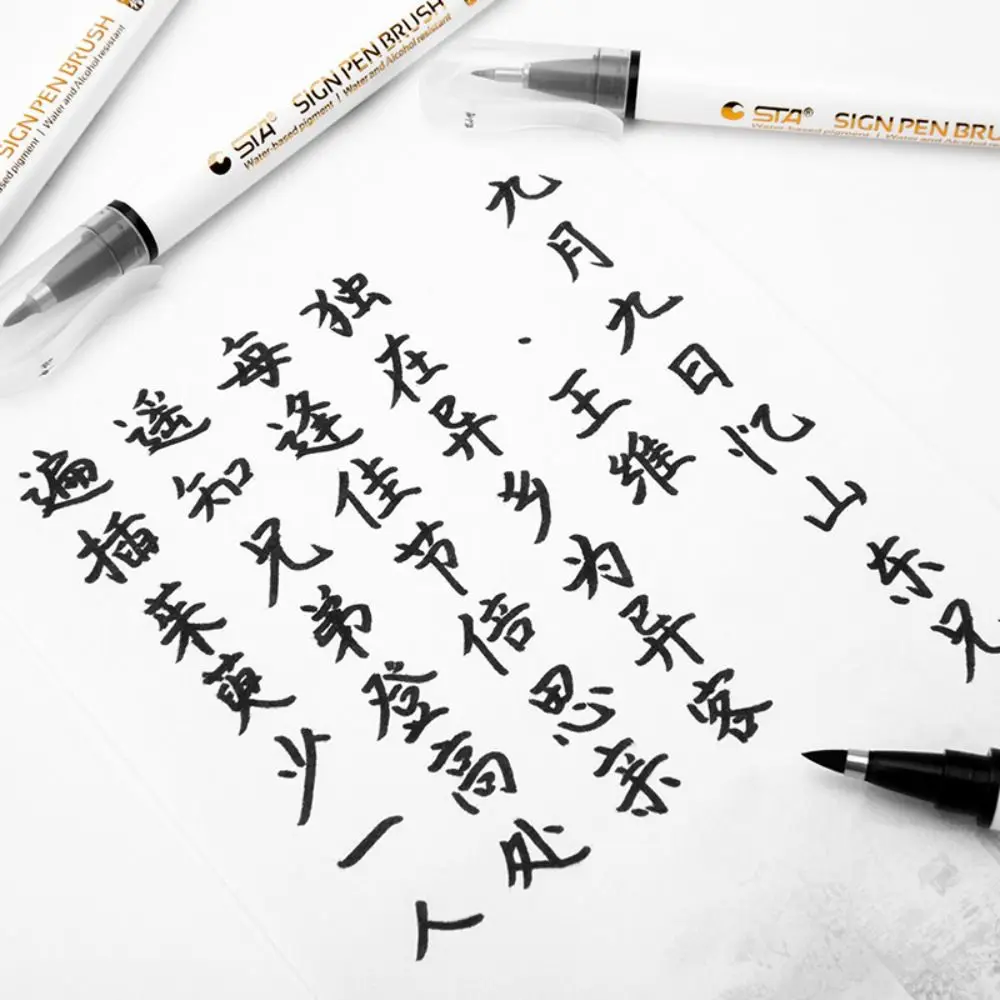 SIGN PEN BRUSH
ased pigment | Water and Alcohol resistant
STA® SIGN PEN BRUSH
Water-based pigment | Water and Alcohol resistant
STA® SIGN PEN BRU
Water-based pigment | Water and Alcohol
九月九日忆山东兄
·王维
独在异乡为异客
每逢佳节倍思亲
遥知兄弟登高处
遍插茱萸少一人